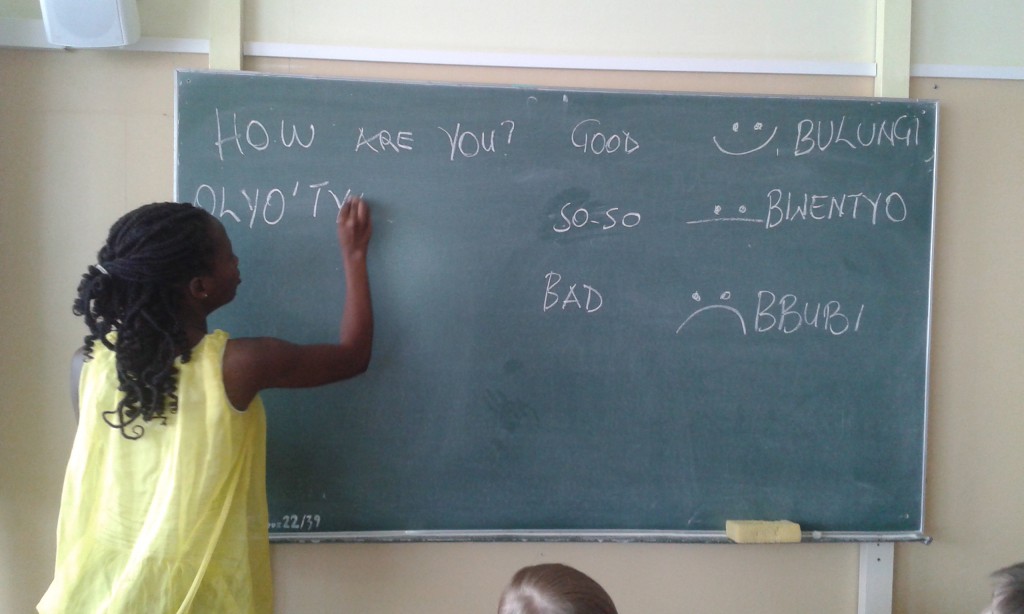 HOW ARE YOU? GOOD BULUNGI,
OLYO'TY
SO-SO BWENTYO
BAD BBUBI
22/39